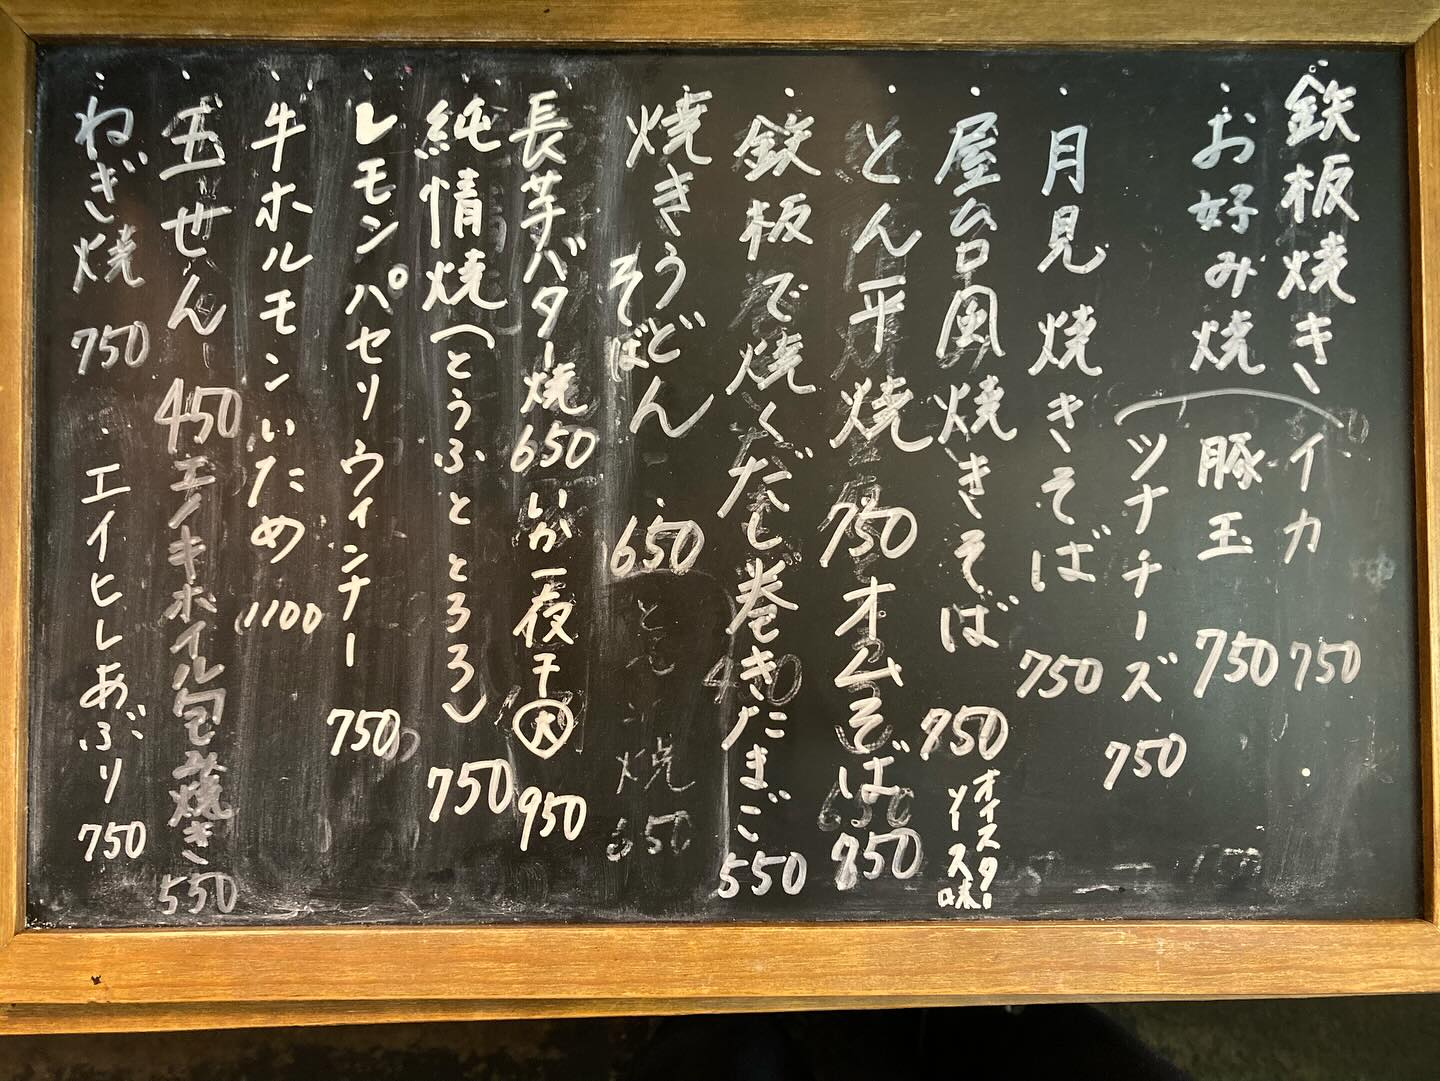 鉄板焼き
お好み焼 イカ 750
豚玉 750
ツナチーズ 750
・月見焼きそば 750
・屋台風焼きそば 750 オイスターソース味
・とん平焼 750
オムそば 850
・鉄板で焼くだし巻きたまご 550
・焼きうどん
そば 650
・長芋バター焼 650
いか一夜干大 950
・純情焼(とうふととろろ) 750
・レモンパセリウィンナー 750
・牛ホルモンいため 1100
・玉せん 450
エノキホイル包み焼き 550
・ねぎ焼 750
・エイヒレあぶり 750